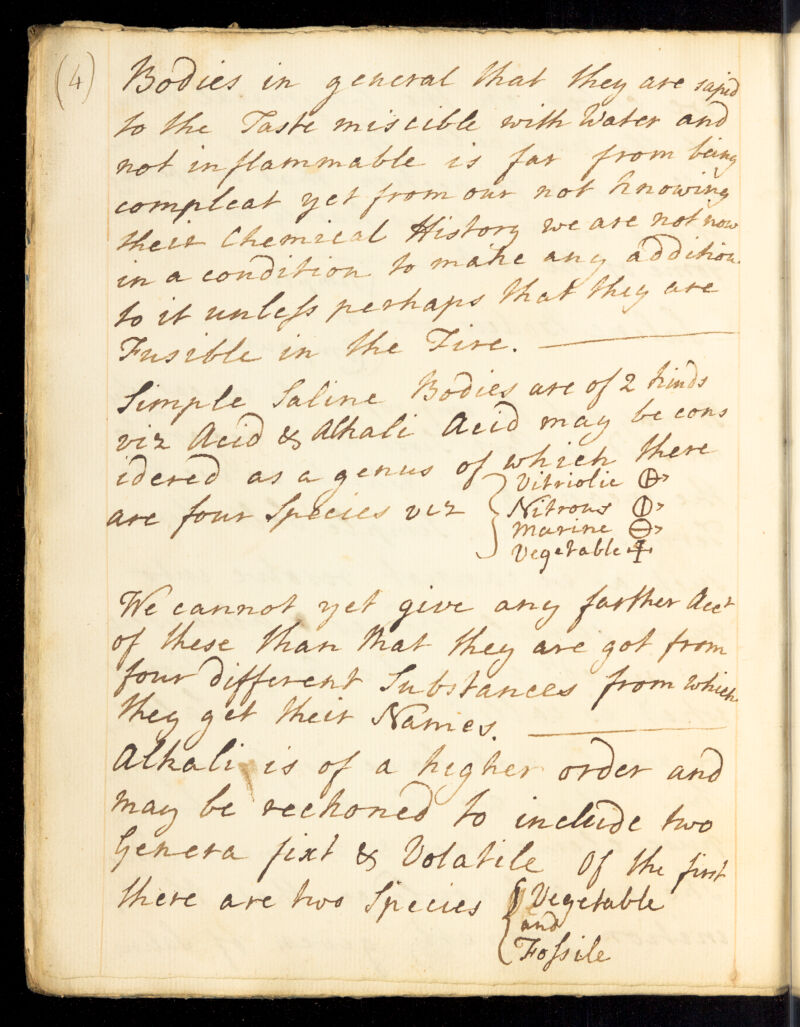 (4)
Bodies in general that they are sapid
to the Taste miscible with Water and
not inflammable is far from being
compleat yet from our not knowing
their Chemical History we are not now
in a condition to make any addition
to it unleſs perhaps that they are
Fusible in the Fire. —
Simple Saline Bodies are of 2 kinds
viz Acid & Alkali Acid may be cons
idered as a genus of which there
are four Species viz { Vitriolic
Nitrous
Marine
Vegetable
We cannot yet give any farther Acct
of these than that they are got from
four different Substances from which
they get their Names. —
Alkali is of a higher order and
may be reckoned to include two
Genera fixt & Volatile Of the first
there are two Species { Vegetable
and
Foſsile